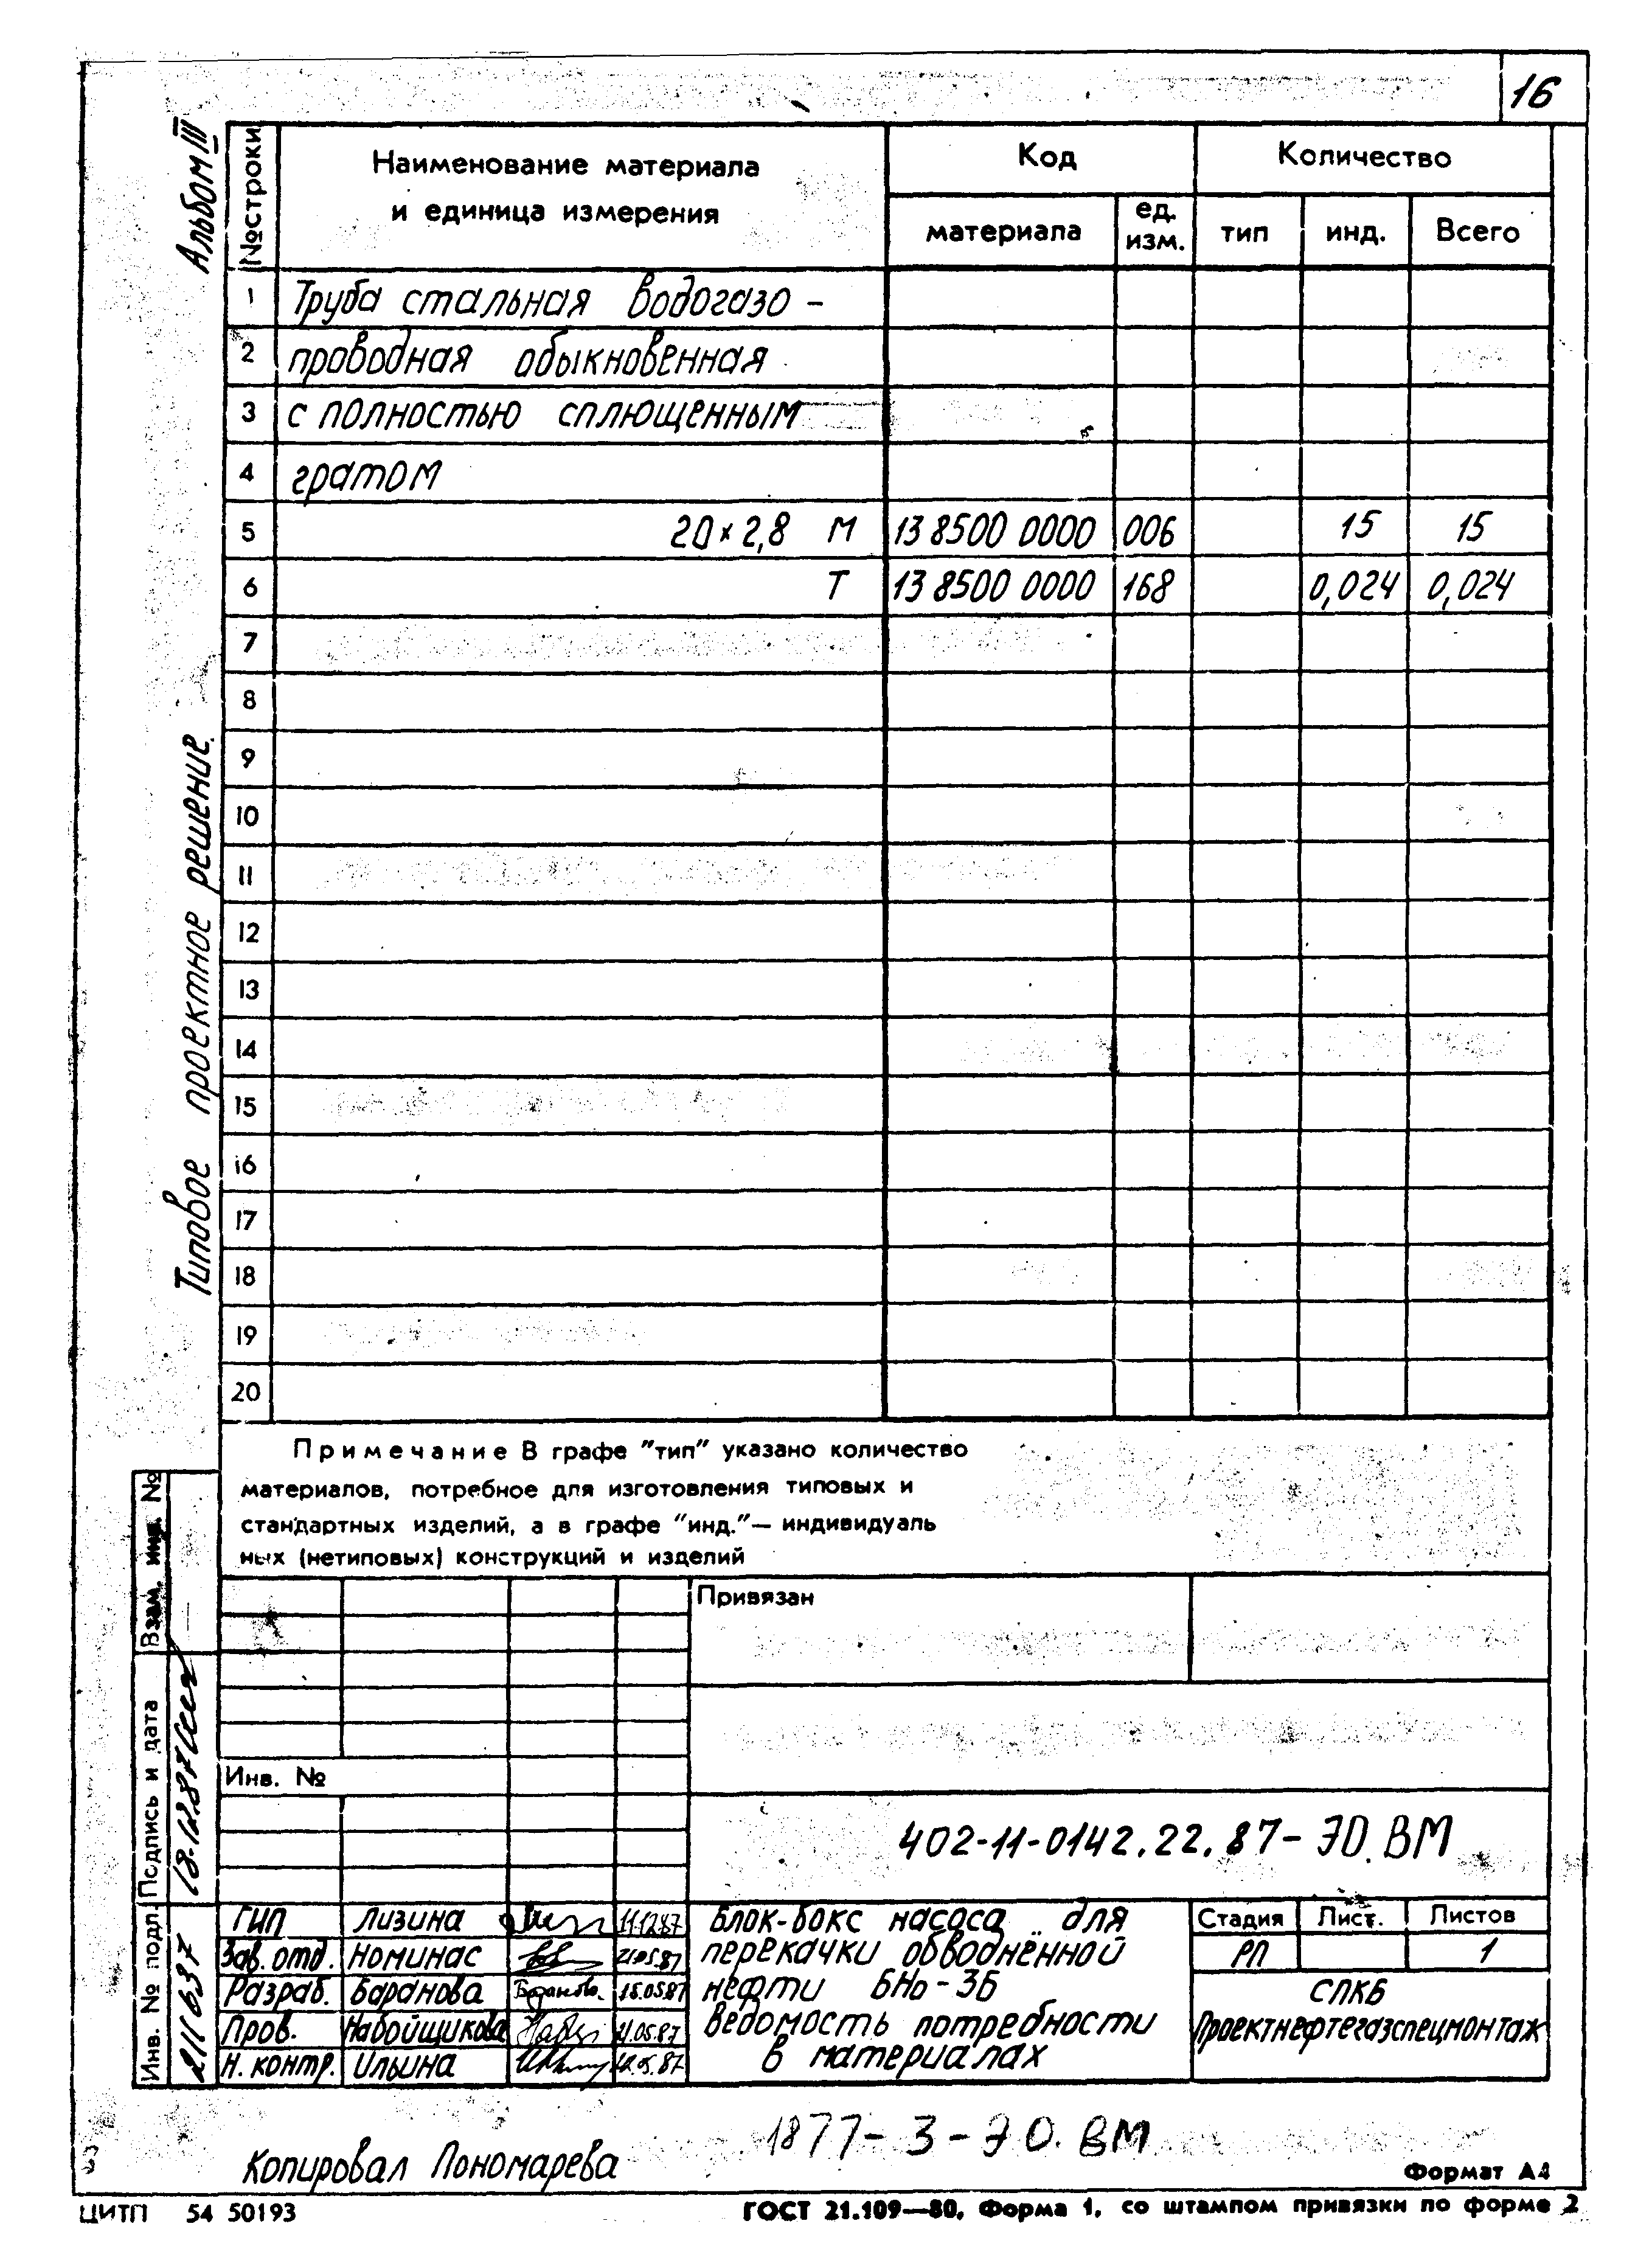 16
Альбом III
№ строки
Наименование материала
и единица измерения
Код
Количество
материала
ед.
изм.
тип
инд.
Всего
1 Труба стальная водогазо -
2 проводная обыкновенная
3 с полностью сплющенным
4 гратом
5 20 x 2,8 м 13 8500 0000 006 15 15
6 т 13 8500 0000 168 0,024 0,024
7
8
9
10
11
12
13
14
15
16
17
18
19
20
Типовое проектное решение
Примечание В графе "тип" указано количество
материалов, потребное для изготовления типовых и
стандартных изделий, а в графе "инд."— индивидуаль
ных (нетиповых) конструкций и изделий
Взам. инв. №
Подпись и дата
18.12.87
Инв. № подл.
211637
Привязан
Инв. №
402-11-0142.22.87-ЭО.ВМ
ГИП Лизина 11.12.87
Зав. отд. Номинас 21.05.87
Разраб. Баранова Баранова 15.05.87
Пров. Набойщикова 21.05.87
Н. контр. Ильина 22.05.87
Блок-бокс насоса для
перекачки обводнённой
нефти БНо-3Б
Ведомость потребности
в материалах
Стадия Лист. Листов
РП 1
СПКБ
Проектнефтегазспецмонтаж
1877-3-ЭО.ВМ
Копировал Пономарева
Формат А4
ЦИТП 54 50193
ГОСТ 21.109—80, Форма 1, со штампом привязки по форме 2